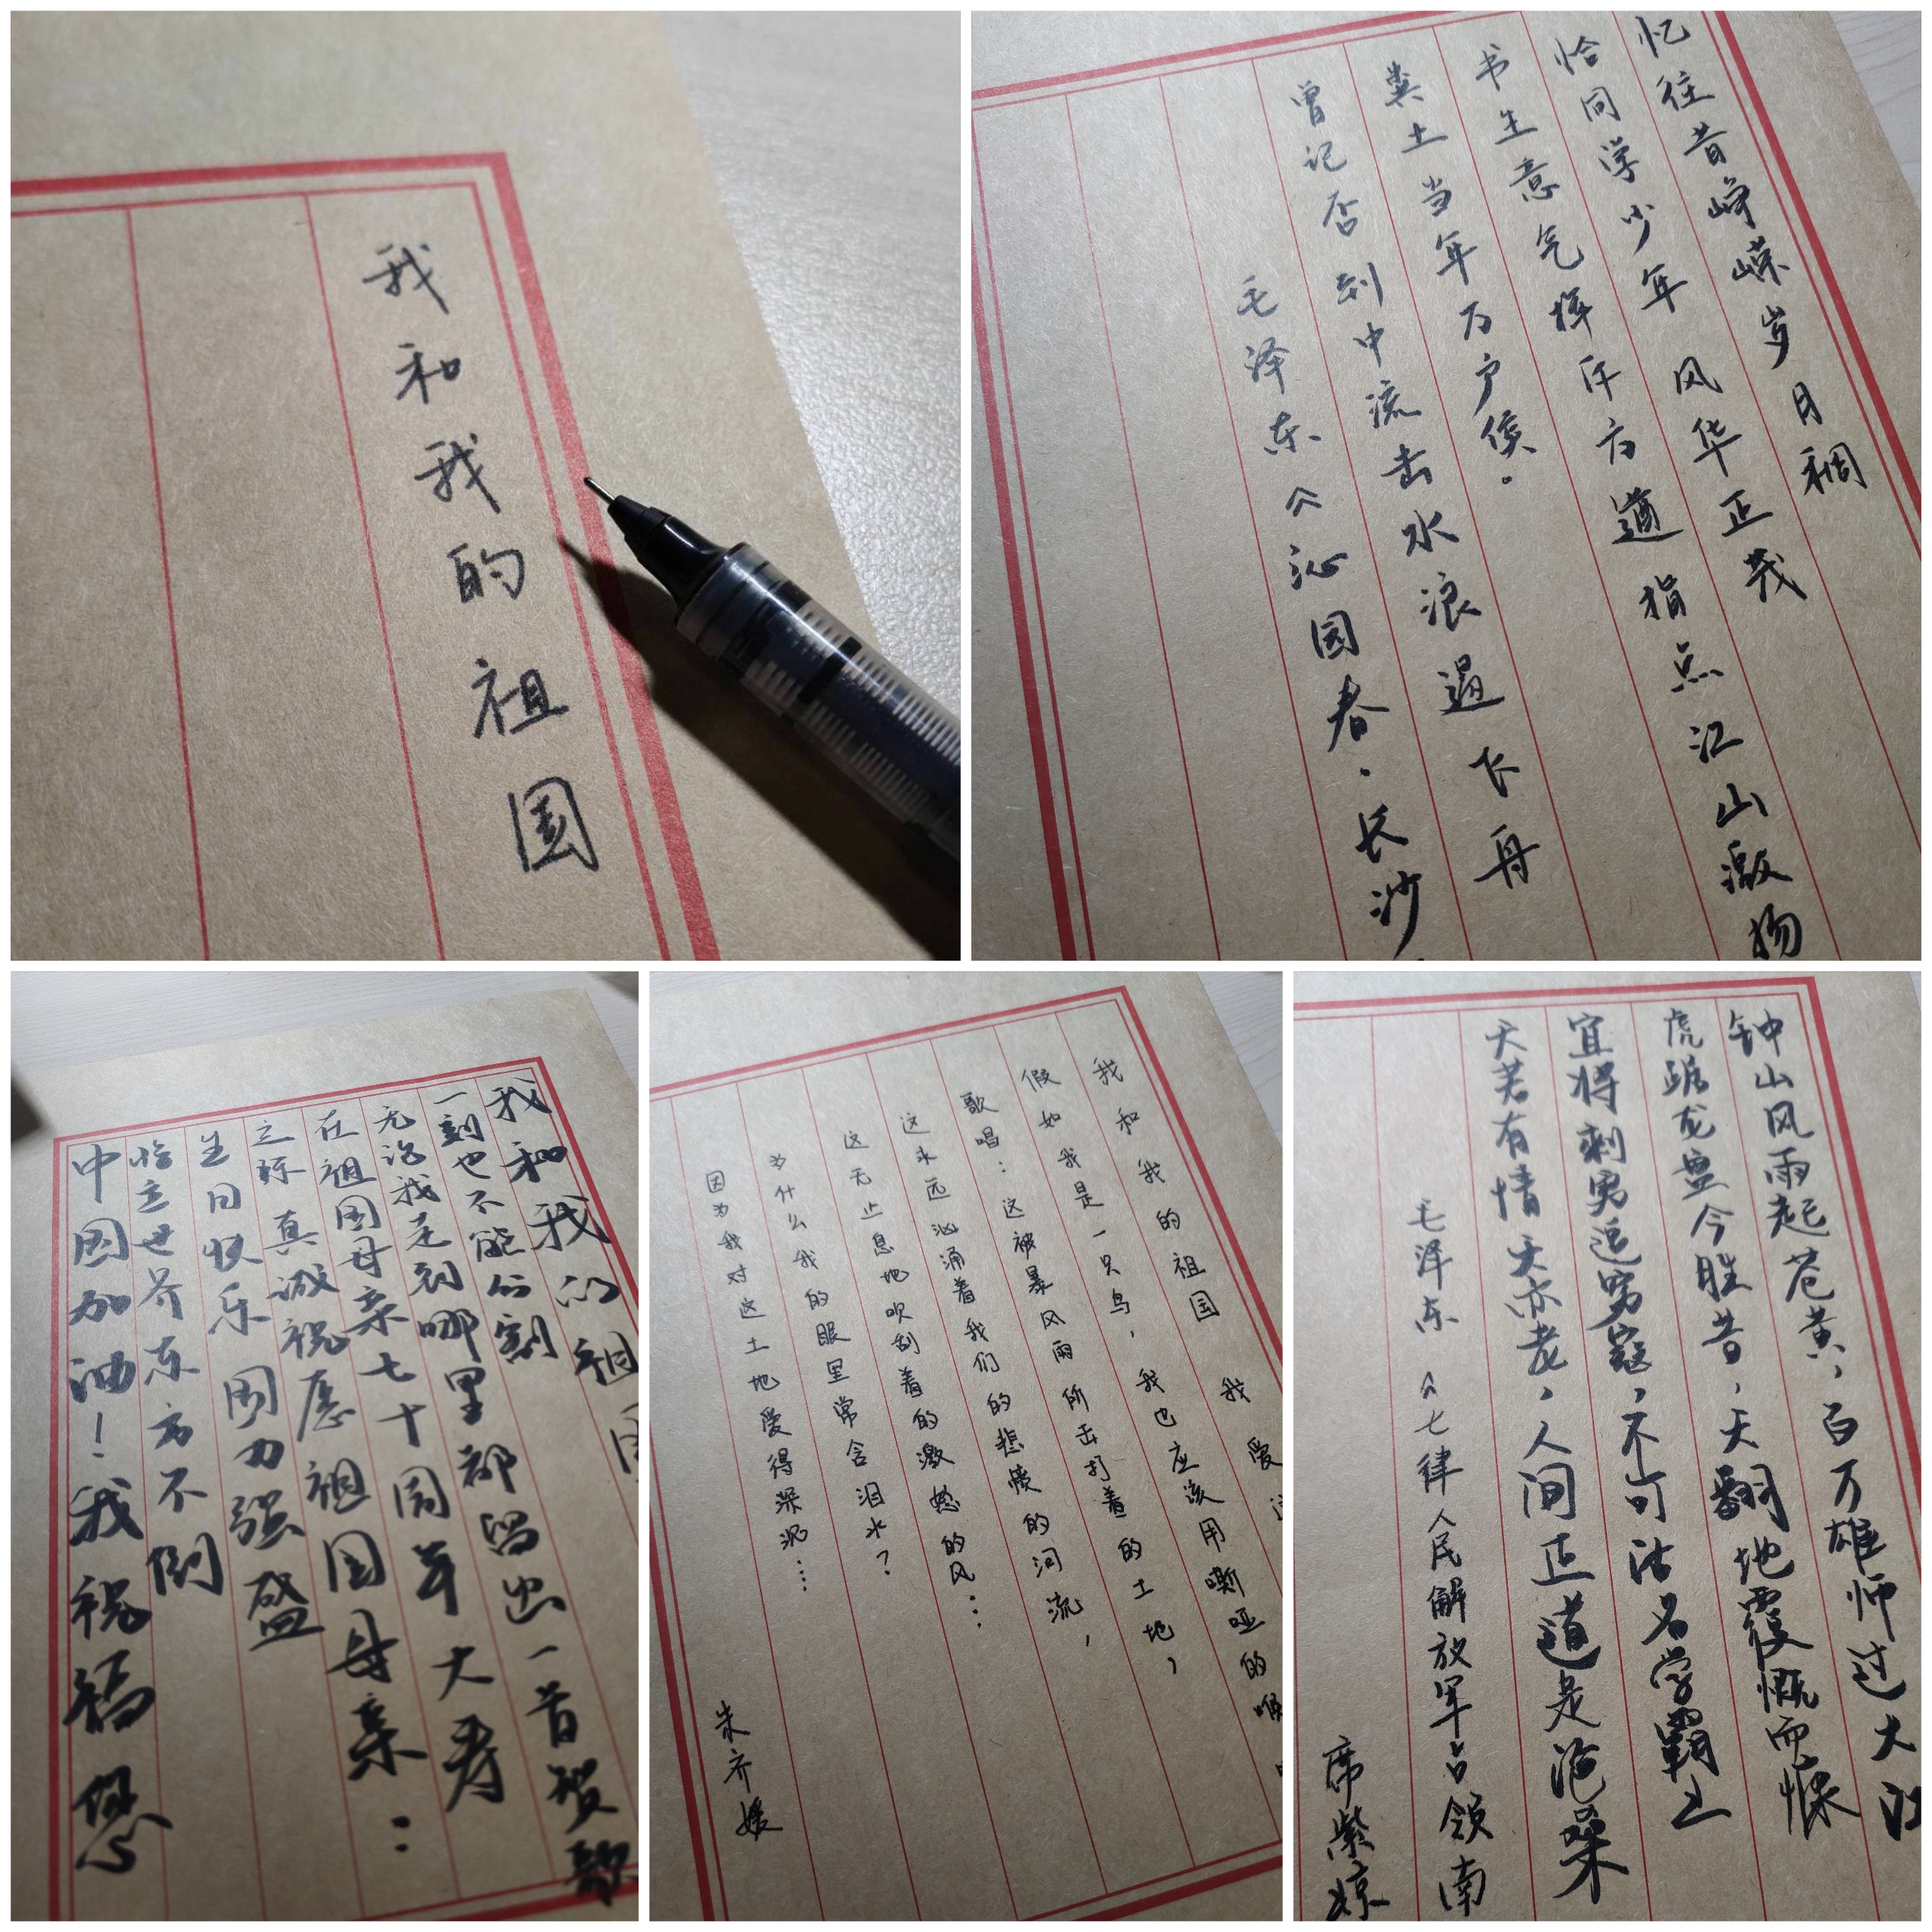 我和我的祖国
忆往昔峥嵘岁月稠
恰同学少年 风华正茂
书生意气挥斥方遒 指点江山激扬
粪土当年万户侯。
曾记否 到中流击水浪遏飞舟
毛泽东《沁园春·长沙
我和我的祖国
一刻也不能分割
无论我走到哪里都留出一首赞歌
在祖国母亲七十周年大寿
之际 真诚祝愿祖国母亲:
生日快乐 国力强盛
屹立世界东方不倒
中国加油!我祝福您
我和我的祖国 我爱
假如我是一只鸟,我也应该用嘶哑的喉
歌唱:这被暴风雨所击打着的土地,
这永远汹涌着我们的悲愤的河流,
这无止息地吹刮着的激怒的风……
为什么我的眼里常含泪水?
因为我对这土地爱得深沉……
朱齐媛
钟山风雨起苍黄,百万雄师过大江
虎踞龙盘今胜昔,天翻地覆慨而慷
宜将剩勇追穷寇,不可沽名学霸王
天若有情天亦老,人间正道是沧桑
毛泽东《七律人民解放军占领南
席紫